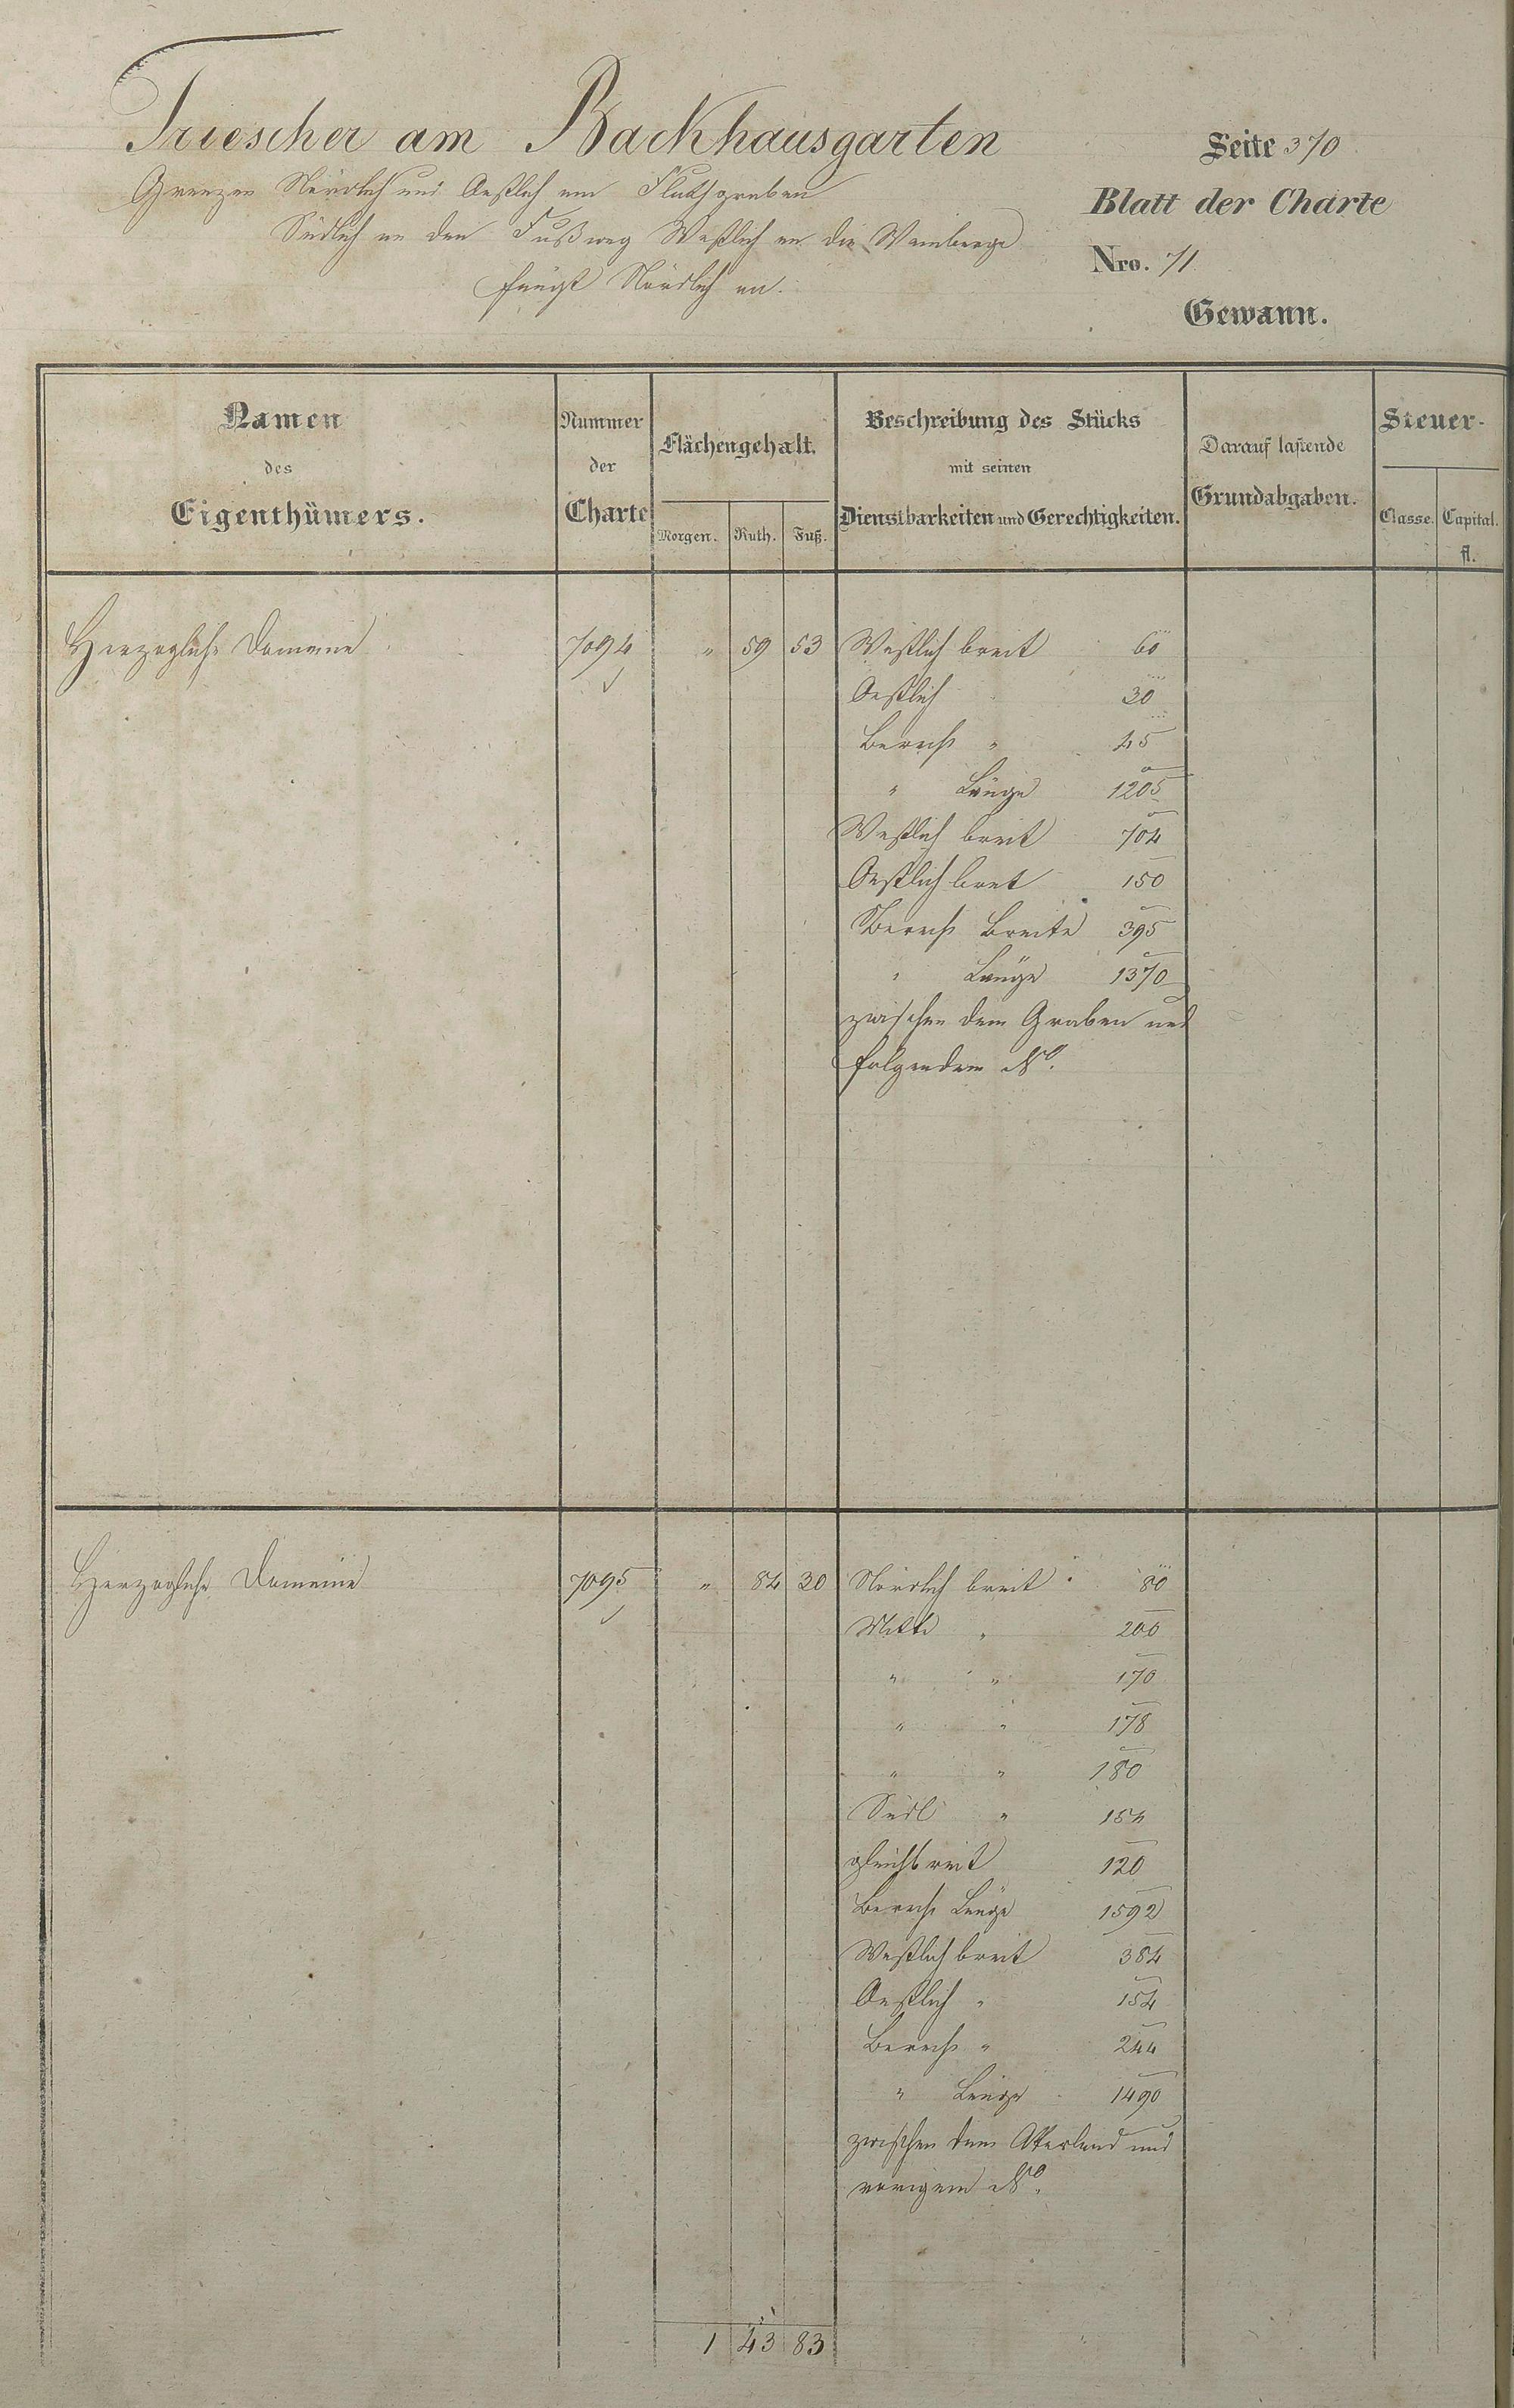 Triescher am Backhausgarten
Grenzen Nördlich und Oestlich am Fluthgraben
Südlich an den Fußweg Westlich an die Weinberge
fängt Nördlich an.
Seite 370
Blatt der Charte
Nro. 71
Gewann.
Namen des Eigenthümers.
Nummer der Charte
Flächengehalt.
Morgen. Ruth. Fuß.
Beschreibung des Stücks mit seinen Dienstbarkeiten und Gerechtigkeiten.
Darauf lastende Grundabgaben.
Steuer-
Classe. Capital. fl.
Herzogliche Domaine 7094 " 59 53 Westlich breit 60
Oestlich 30
Berech " 45
" Länge 1205
Westlich breit 704
Oestlich breit 150
Berech Breite 395
" Länge 1370
zwischen dem Graben und
folgendem No.
Herzogliche Domaine 7095 " 84 30 Nördlich breit 80
Mitte " 200
" " 170
" " 178
" " 180
Südl " 154
gleichbreit 120
Berech Länge 1592
Westlich breit 384
Oestlich " 154
Berech " 244
" Länge 1490
zwischen dem Ackerland und
vorigem No.
1 43 83